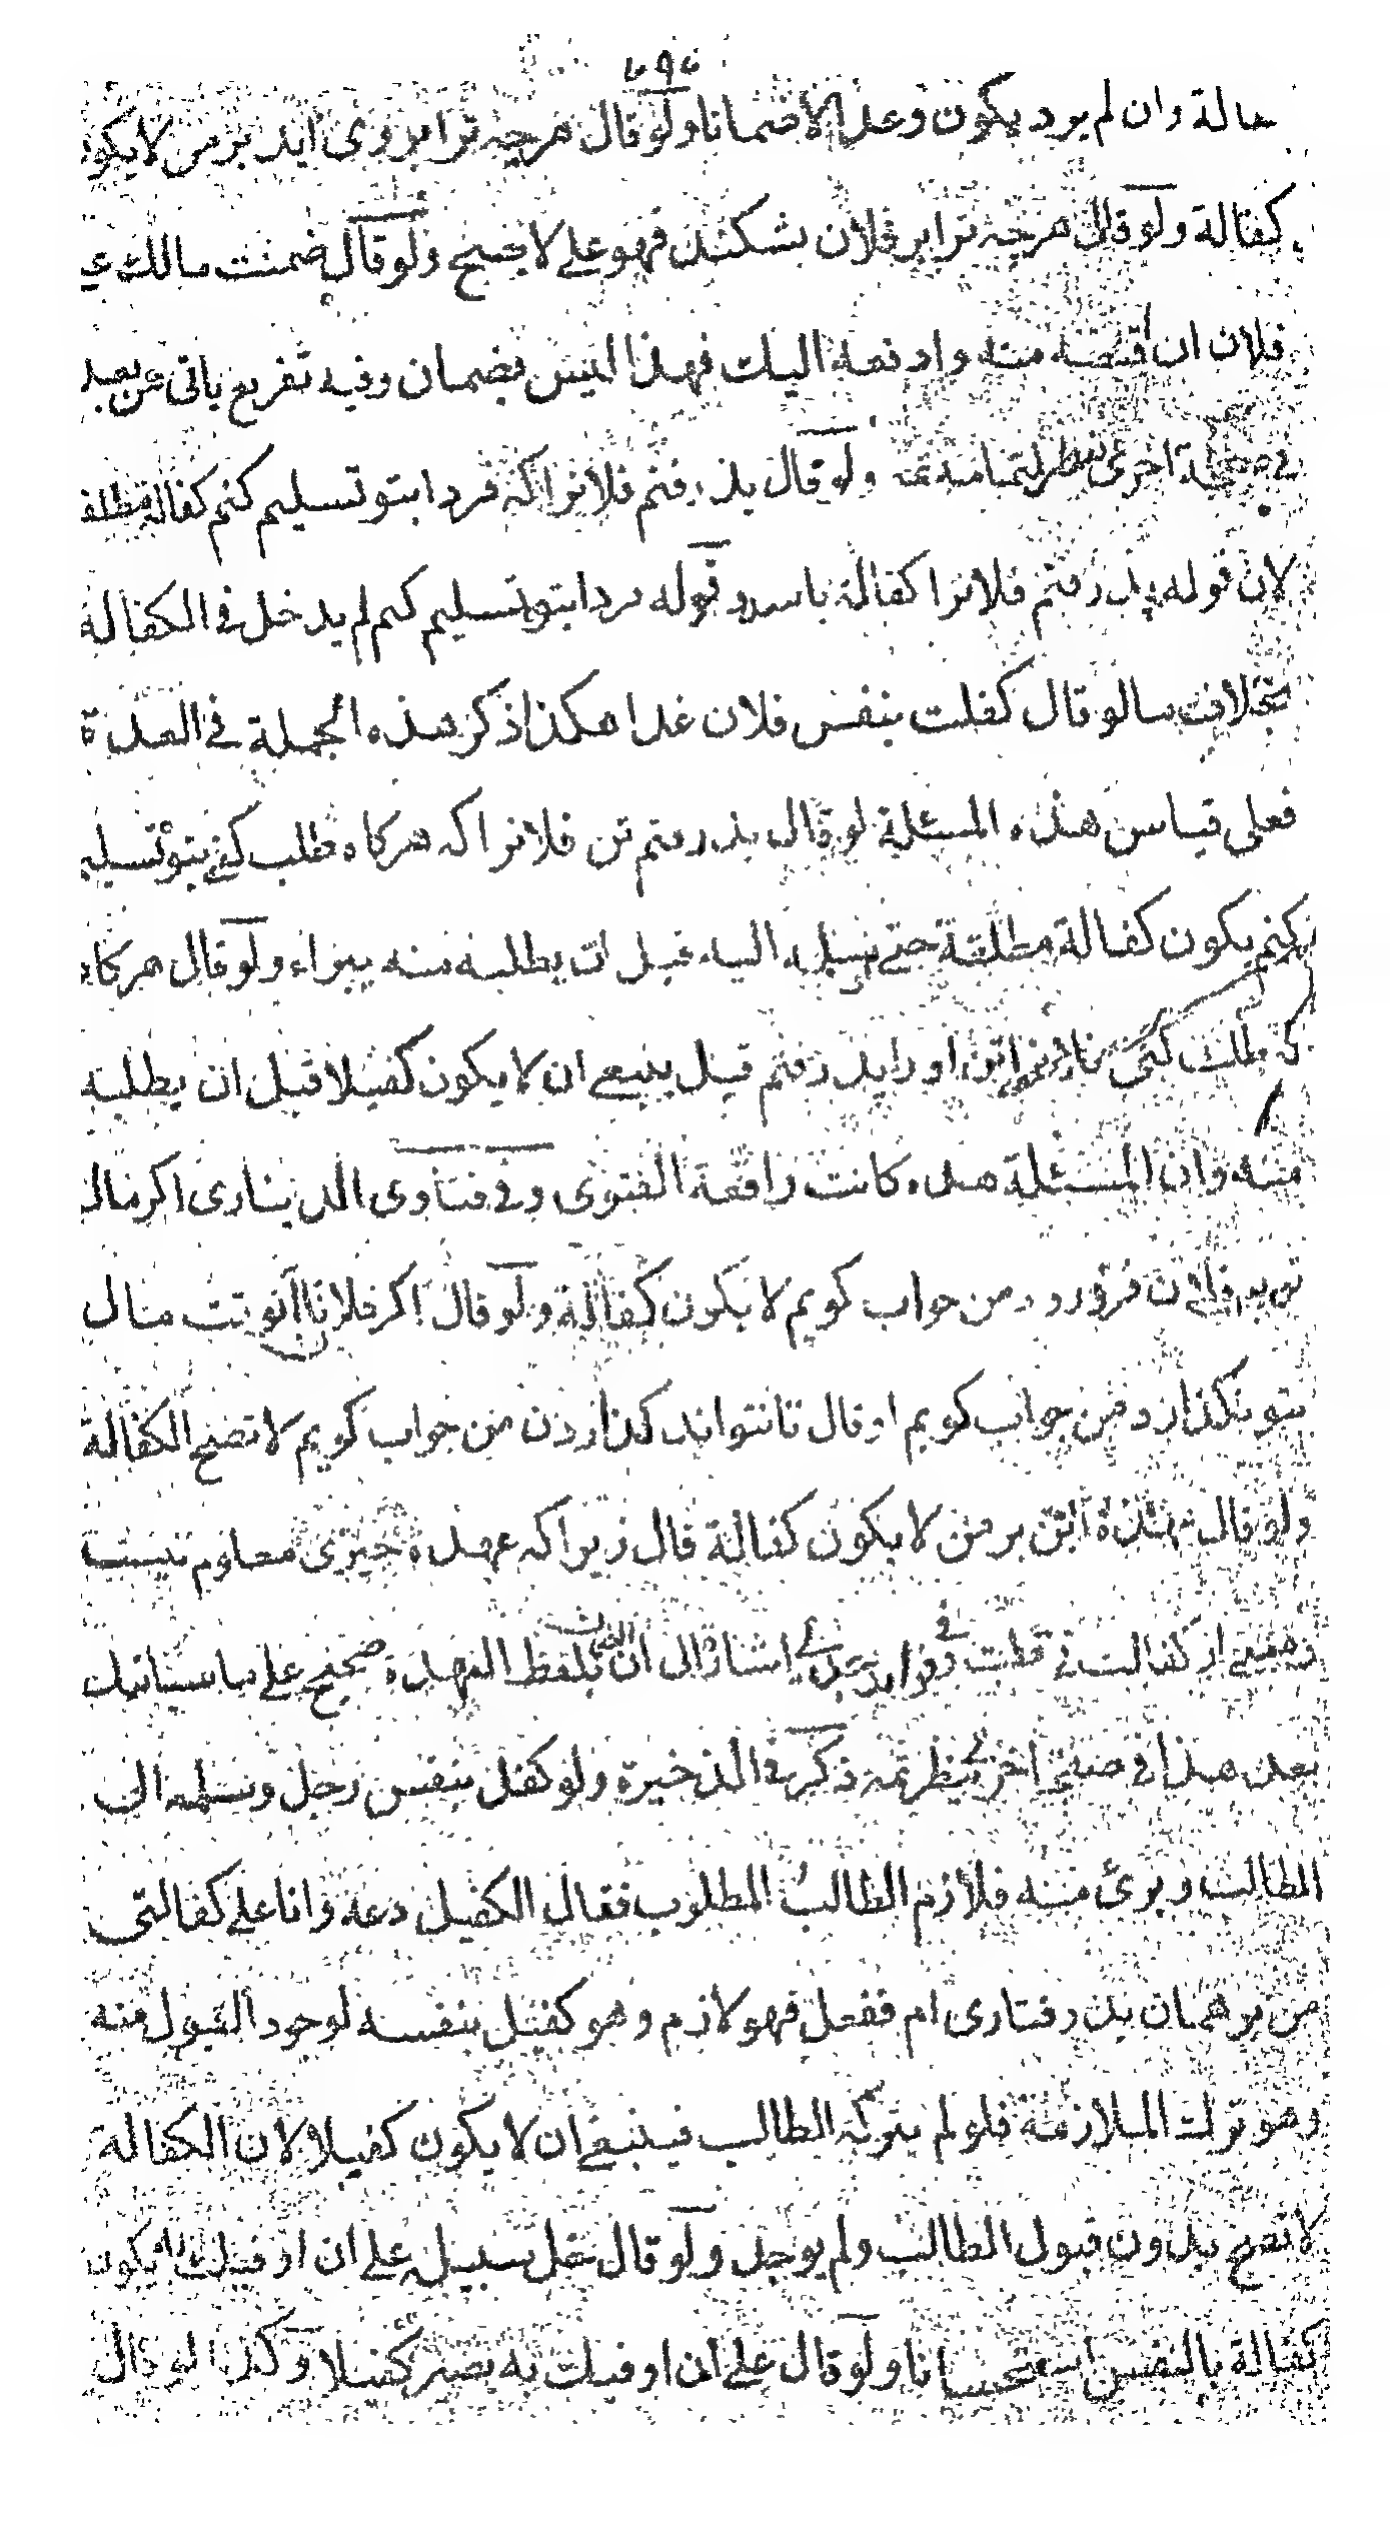 حالة وان لم يرد يكون وعدا لاضمانا ولو قال هرجه ترا بروى ايد برمن لا يكون
كفالة ولو قال هرجه ترا بر فلان بشكند فهو على لا يصح ولو قال ضمنت مالك على
فلان ان اقبضه منه وادفعه اليك فهذا ليس بضمان وفيه تفريع ياتى عن بعد
فى اخرى ولو قال بذرفتم فلانرا كه فردا بتو تسليم كنم كفالة مطلقة
لان قوله بذرفتم فلانرا كفالة وقوله فردا بتو تسليم كنم لم يدخل فى الكفالة
بخلاف مالو قال كفلت بنفس فلان غدا هكذا ذكر هذه الجملة فى العدة
فعلى قياس هذه المسئلة لو قال بذرفتم تن فلانرا كه هركاه طلب كنى بتو تسليم
كنم يكون كفالة مطلقة حتى اليه قبل ان يطلبه منه يبراء ولو قال هركاه
كه طلب كنى اورا بذرفتم قيل ينبغى ان لا يكون كفيلا قبل ان يطلبه
منه وان المسئلة هذه كانت واقعة الفتوى وفى فتاوى الدينارى اكر مال
تو بر فلان فرو رود من جواب كويم لا يكون كفالة ولو قال اكر فلان مال
بتو نكذارد من جواب كويم او قال تا نتواند كذاردن من جواب كويم لا تصح الكفالة
ولو قال عهدة اين برمن لا يكون كفالة قال زيرا كه عهده جيزى معلوم نيست
از كفالت قلت وفى اشار الى ان بلفظ العهدة صحيح على ما سياتيك
بعد هذا فى اخرى ذكر فى الذخيرة ولو كفل بنفس رجل وسلمه الى
الطالب وبرئ منه فلازم الطالب المطلوب فقال الكفيل دعه وانا على كفالتى
من بر همان بذرفتارى ام ففعل فهو لازم وهو كفيل بنفسه لوجود القبول منه
وهو ترك الملازمة فلو لم يتركه الطالب فينبغى ان لا يكون كفيلا لان الكفالة
لا تصح بدون قبول الطالب ولم يوجد ولو قال على ان اوفيك به يكون
كفالة بالنفس استحسانا ولو قال على ان اوفيك به يصير كفيلا وكذا لو قال